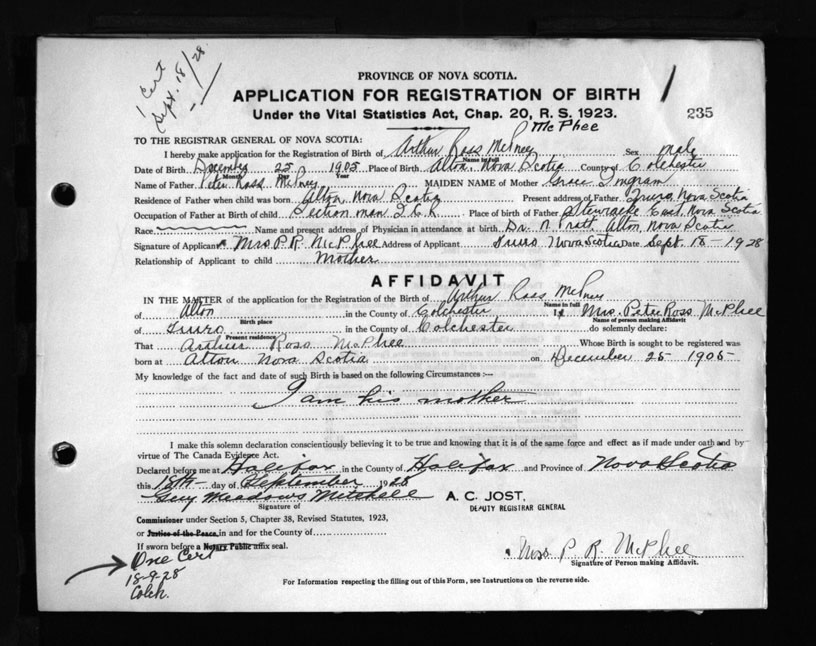 1 Cert
Sept. 18/28
PROVINCE OF NOVA SCOTIA.
APPLICATION FOR REGISTRATION OF BIRTH
Under the Vital Statistics Act, Chap. 20, R. S. 1923.
235
McPhee
TO THE REGISTRAR GENERAL OF NOVA SCOTIA:
I hereby make application for the Registration of Birth of Arthur Ross Sex male
Name in full
Date of Birth December 25 1905 Place of Birth Alton, Nova Scotia County of Colchester
Month Day Year
Name of Father Peter Ross MAIDEN NAME of Mother Grace Ingram
Residence of Father when child was born Alton, Nova Scotia Present address of Father Truro, Nova Scotia
Occupation of Father at Birth of child Section man I.C.R. Place of birth of Father Stewiacke East, Nova Scotia
Race Name and present address of Physician in attendance at birth Dr. Pratt Alton, Nova Scotia
Signature of Applicant Mrs P. R. McPhee Address of Applicant Truro Nova Scotia Date Sept. 18 - 1928
Relationship of Applicant to child Mother
AFFIDAVIT
IN THE MATTER of the application for the Registration of the Birth of Arthur Ross
Name in full
of Alton in the County of Colchester I, Mrs. Peter Ross McPhee
Birth place Name of person making Affidavit
of Truro in the County of Colchester do solemnly declare:
Present residence
That Arthur Ross McPhee Whose Birth is sought to be registered was
born at Alton Nova Scotia on December 25 1905-
My knowledge of the fact and date of such Birth is based on the following Circumstances :—
I am his mother
I make this solemn declaration conscientiously believing it to be true and knowing that it is of the same force and effect as if made under oath and by
virtue of The Canada Evidence Act.
Declared before me at Halifax in the County of Halifax and Province of Nova Scotia
this 18th day of September 1928
Guy Meadows Mitchell
Signature of
A. C. JOST,
DEPUTY REGISTRAR GENERAL
Commissioner under Section 5, Chapter 38, Revised Statutes, 1923,
or Justice of the Peace in and for the County of
If sworn before a Notary Public affix seal.
Mrs P. R. McPhee
Signature of Person making Affidavit.
One Cert
18-9-28
Colch.
For Information respecting the filling out of this Form, see Instructions on the reverse side.